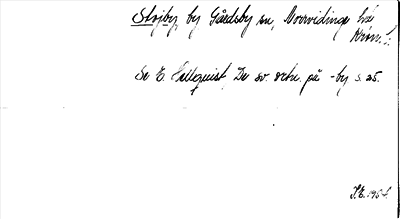 Stojby, by Gårdsby sn, Norrvidinge hd
Kron. l.
Se E. Hellquist, De sv. ortn. på -by s. 25.
J.E. 1954.